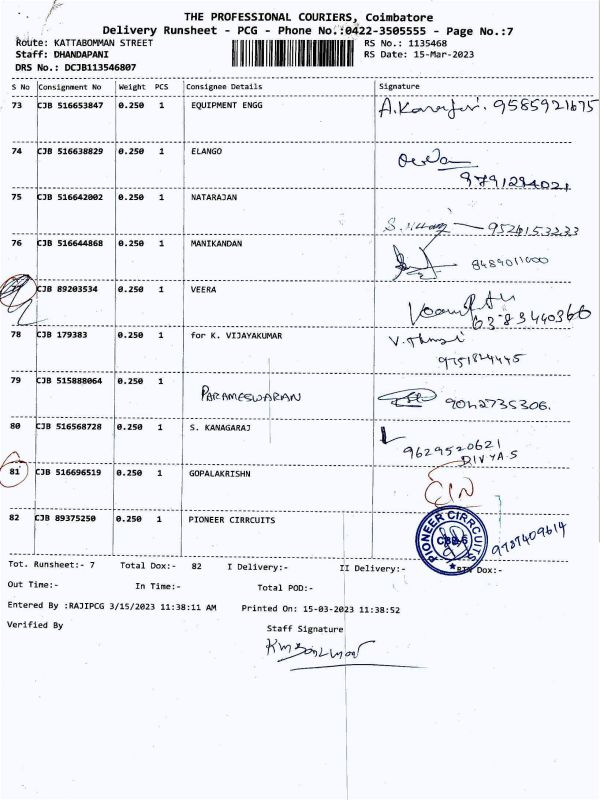 THE PROFESSIONAL COURIERS, Coimbatore
Delivery Runsheet - PCG - Phone No.:0422-3505555 - Page No.:7
Route: KATTABOMMAN STREET RS No.: 1135468
Staff: DHANDAPANI RS Date: 15-Mar-2023
DRS No.: DCJB113546807
S No Consignment No Weight PCS Consignee Details Signature
73 CJB 516653847 0.250 1 EQUIPMENT ENGG 9585921675
74 CJB 516638829 0.250 1 ELANGO
9791294021
75 CJB 516642002 0.250 1 NATARAJAN
76 CJB 516644868 0.250 1 MANIKANDAN
CJB 89203534 0.250 1 VEERA
6383440366
78 CJB 179383 0.250 1 for K. VIJAYAKUMAR
9751824445
79 CJB 515888064 0.250 1 PARAMESWARAN 9042735306.
80 CJB 516568728 0.250 1 S. KANAGARAJ
9629520621
DIVYA.S
81 CJB 516696519 0.250 1 GOPALAKRISHN
CIN
82 CJB 89375250 0.250 1 PIONEER CIRRCUITS PIONEER CIRRCUITS CBE-6 9787409614
Tot. Runsheet:- 7 Total Dox:- 82 I Delivery:- II Delivery:- RTN Dox:-
Out Time:- In Time:- Total POD:-
Entered By :RAJIPCG 3/15/2023 11:38:11 AM Printed On: 15-03-2023 11:38:52
Verified By Staff Signature